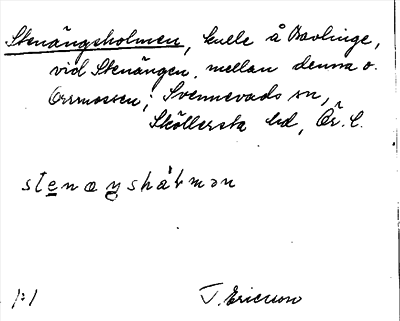 Stenängsholmen, kulle å Bavlinge,
vid Stenängen, mellan denna o.
Orrmossen; Svennevads sn,
Sköllersta hd, Ör. l.
stenæŋshålmən
1:1
T. Ericsson